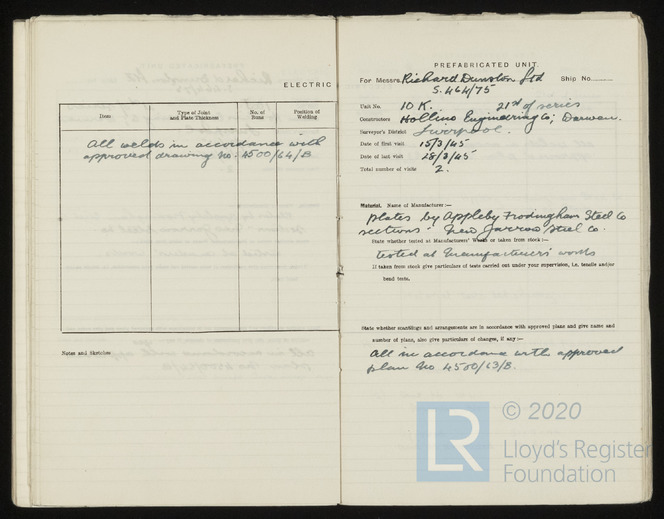 ELECTRIC
Item
Type of Joint and Plate Thickness
No. of Runs
Position of Welding
All welds in accordance with
approved drawing No. 4500/64/B
Notes and Sketches
PREFABRICATED UNIT.
For Messrs. Richard Dunston Ltd Ship No.
S.464/75
Unit No. 10 K. 21st of series
Constructors Hollins Engineering Co; Darwen.
Surveyor's District Liverpool.
Date of first visit 15/3/45
Date of last visit 28/3/45
Total number of visits 2.
Material. Name of Manufacturer:—
plates by Appleby Frodingham Steel Co
sections - New Jarrow Steel Co.
State whether tested at Manufacturers' Works or taken from stock:—
tested at Manufacturers' works
If taken from stock give particulars of tests carried out under your supervision, i.e. tensile and/or
bend tests.
State whether scantlings and arrangements are in accordance with approved plans and give name and
number of plans, also give particulars of changes, if any:—
All in accordance with approved
plan No 4500/63/B.
© 2020
LR
Lloyd's Register
Foundation